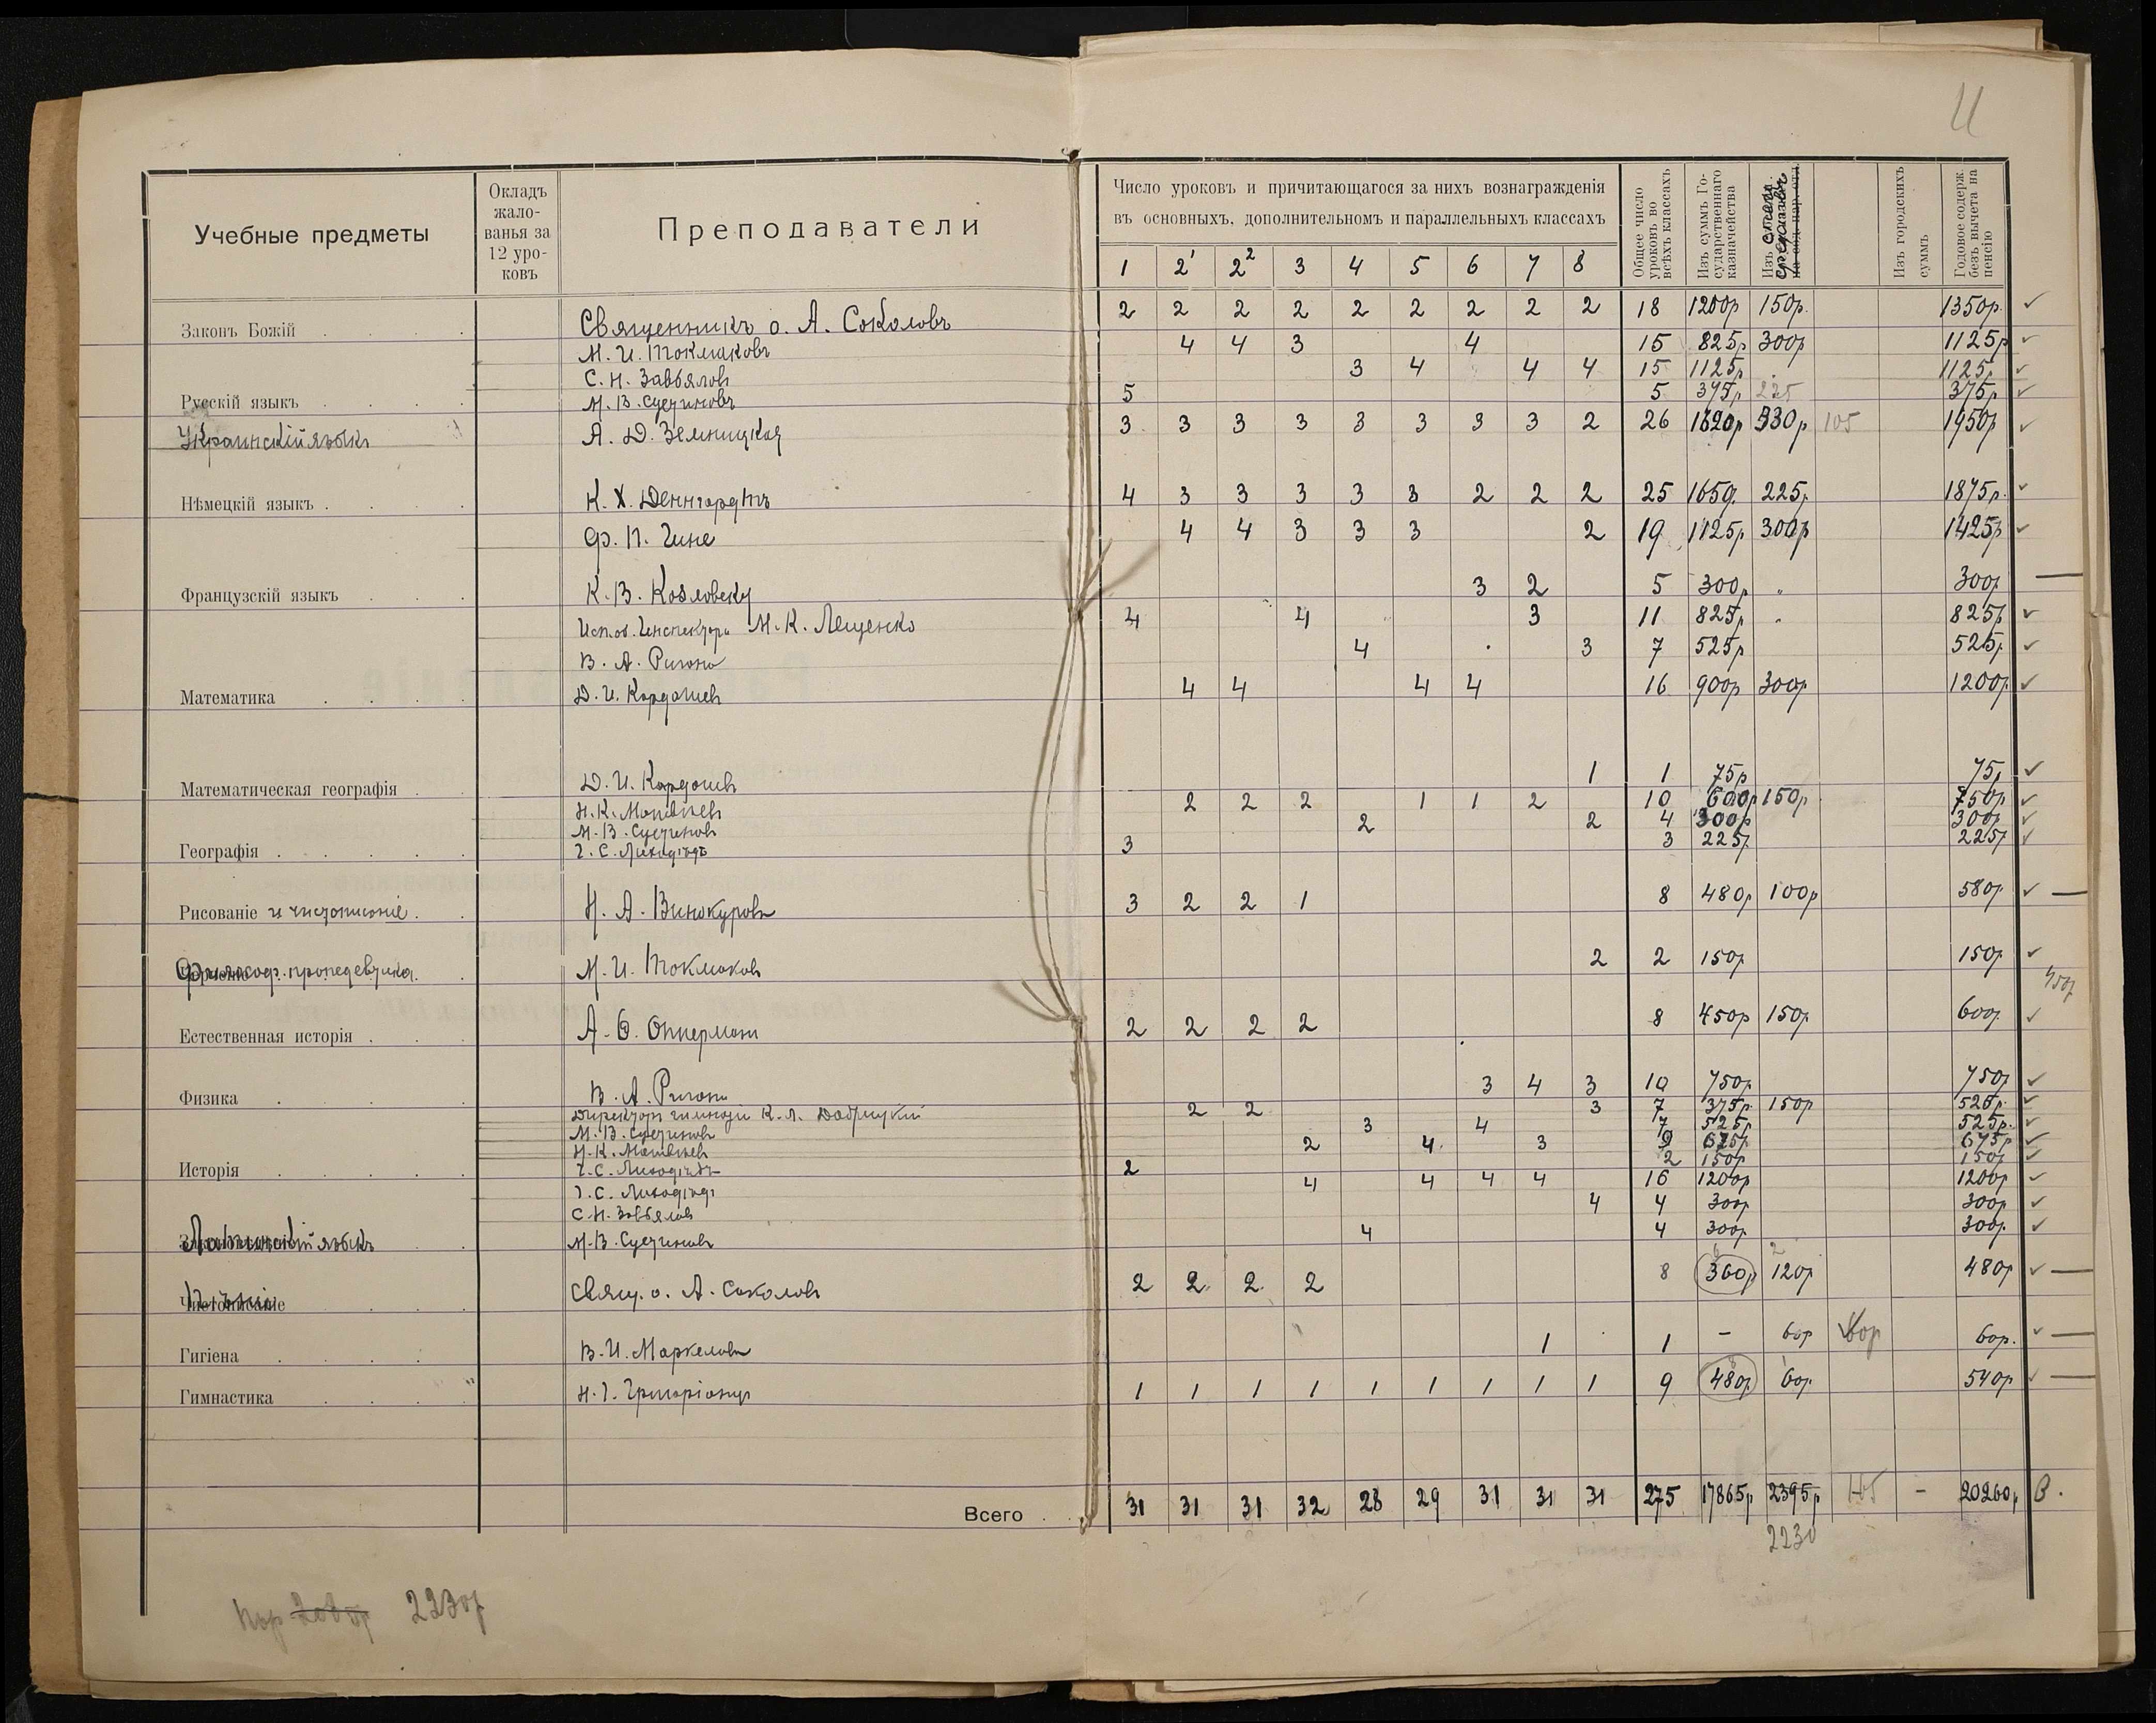 11
Учебные предметы
Окладъ жало-
ванья за
12 уро-
ковъ
Преподаватели
Число уроковъ и причитающагося за нихъ вознагражденія
въ основныхъ, дополнительномъ и параллельныхъ классахъ
1 2¹ 2² 3 4 5 6 7 8
Общее число уроковъ во всѣхъ классахъ
Изъ суммъ Го-
сударственнаго
казначейства
Изъ спец. средствъ
Изъ городскихъ суммъ
Годовое содерж.
безъ вычета на
пенсію
Законъ Божій Священникъ о. А. Соколовъ 2 2 2 2 2 2 2 2 2 18 1200р 150р. 1350р.
М. И. Токмаковъ 4 4 3 4 15 825р 300р 1125р
С. Н. Завьяловъ 3 4 4 4 15 1125р 1125р
Русскій языкъ М. В. Сустиновъ 5 5 375р 225 375р
Украинскій языкъ А. Д. Зелницкая 3 3 3 3 3 3 3 3 2 26 1620р 330р 105 1950р
Нѣмецкій языкъ К. Х. Деннгардтъ 4 3 3 3 3 3 2 2 2 25 1650р. 225р. 1875р.
Ф. П. Гине 4 4 3 3 3 2 19 1125р 300р 1425р
Французскій языкъ К. В. Козловску 3 2 5 300р „ 300р
Исп. об. Инспектора М. К. Лещенко 4 4 3 11 825р „ 825р
В. А. Ригони 4 3 7 525р 525р
Математика Д. И. Кардашев 4 4 4 4 16 900р 300р 1200р
Математическая географія Д. И. Кардашев 1 1 75р 75р
Н. К. Матвѣев 2 2 2 1 1 2 10 600р 150р 750р
М. В. Сустинов 2 2 4 300р 300р
Географія І. С. 3 3 225р 225р
Рисованіе и чистописаніе Н. А. Винокуровъ 3 2 2 1 8 480р 100р 580р
Философ. пропедевтика М. И. Токмаков 2 2 150р 150р
450р
Естественная исторія А. Ѳ. Оккерман 2 2 2 2 8 450р 150р 600р
Физика В. А. Ригони 3 4 3 10 750р 750р
Директор гимназіи К. Л. Добрицкій 2 2 3 7 375р 150р 525р
М. В. Сустинов 3 4 7 525р 525р
Н. К. Матвѣев 2 4 3 9 675р 675р
Исторія І. С. 2 2 150р 150р
І. С. 4 4 4 4 16 1200р 1200р
С. Н. Завьялов 4 4 300р 300р
Латинскій языкъ М. В. Сустинов 4 4 300р 300р
Чистописаніе Пѣніе Свящ. о. А. Соколов 2 2 2 2 8 360р 120р 480р
Гигіена В. И. Маркелов 1 1 – 60р 60р 60р.
Гимнастика Н. І. 1 1 1 1 1 1 1 1 1 9 480р 60р 540р
Всего 31 31 31 32 28 29 31 31 31 275 17865р 2395р 165 – 20260р В.
2230
2230р